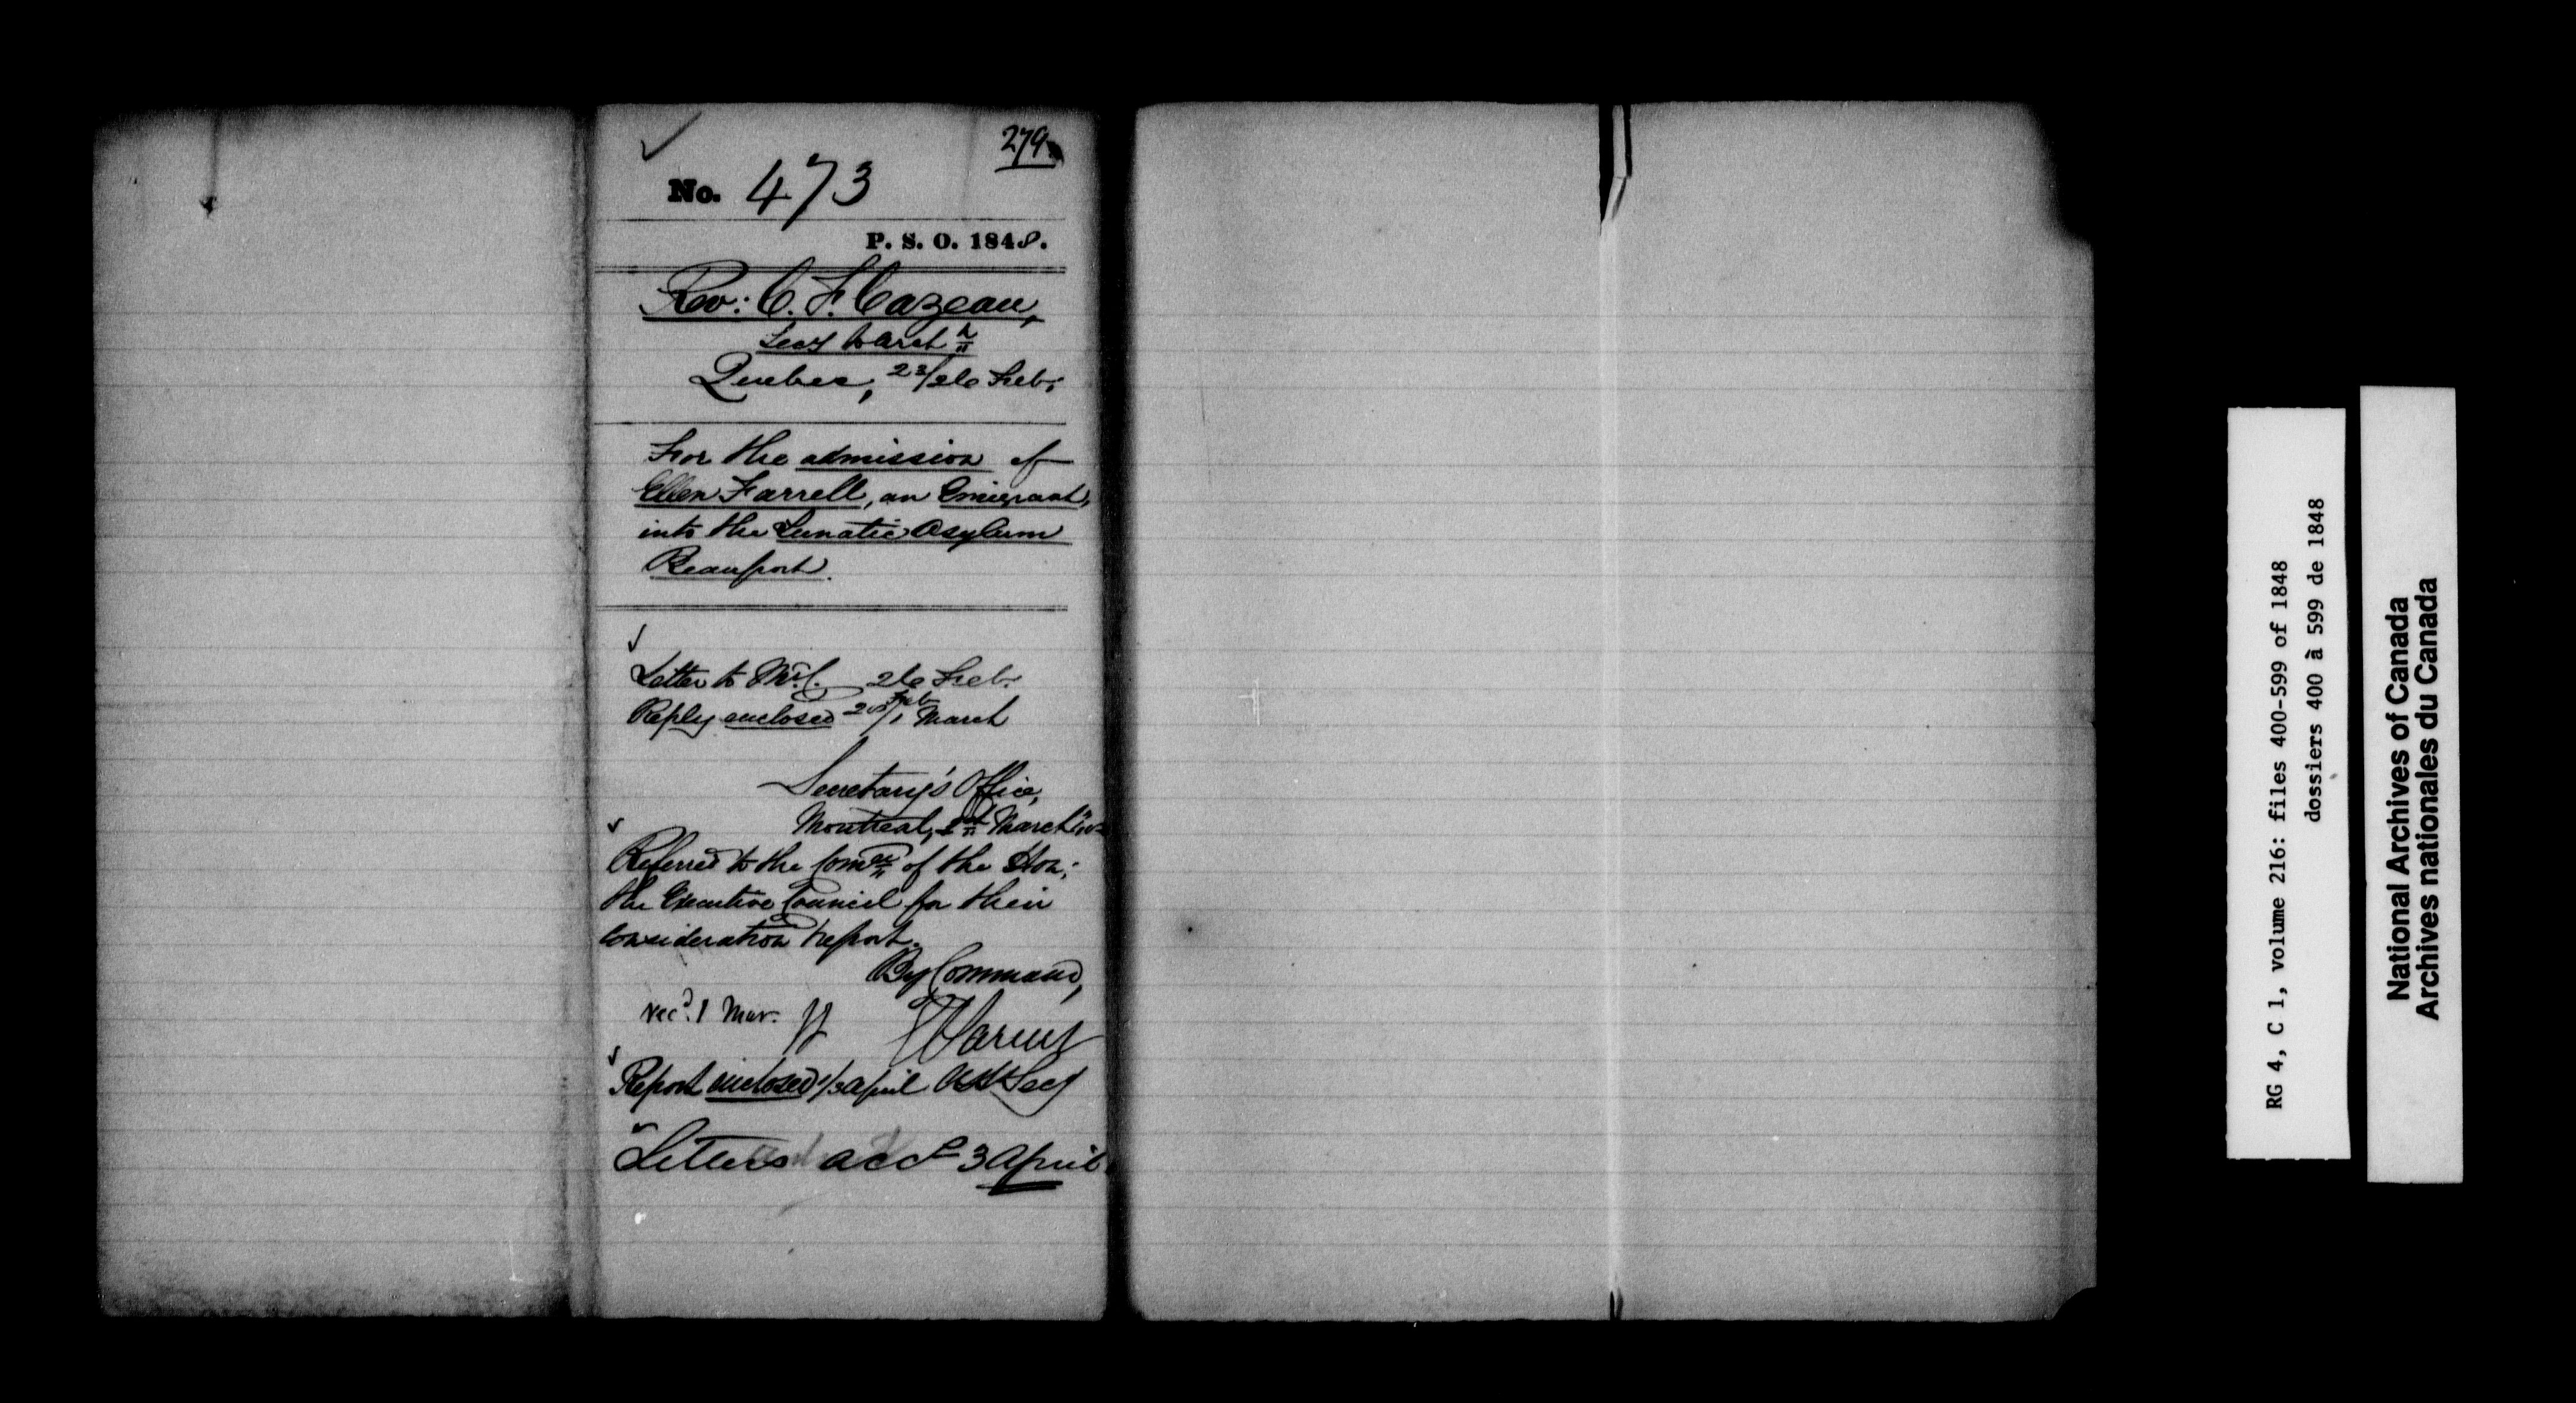 279
No. 473
P. S. O. 1848.
Rev: C. F. Cazeau,
Secy to Arch
Quebec, 23/26 Feb:
For the admission of
Ellen Farrell, an Emigrant,
into the Lunatic Asylum
Beauport.
Letter to Mr. C. 26 Feb:
Reply enclosed 28 Feb/1 March
Secretary's Office,
Montreal, 1st March
Referred to the Comee of the Hon:
the Executive Council for their
consideration & report.
By Command,
recd. 1 Mar.
Report enclosed 1/3 April Asst Secy
Letters accd 3 April
RG 4, C 1, volume 216: files 400-599 of 1848
dossiers 400 à 599 de 1848
National Archives of Canada
Archives nationales du Canada